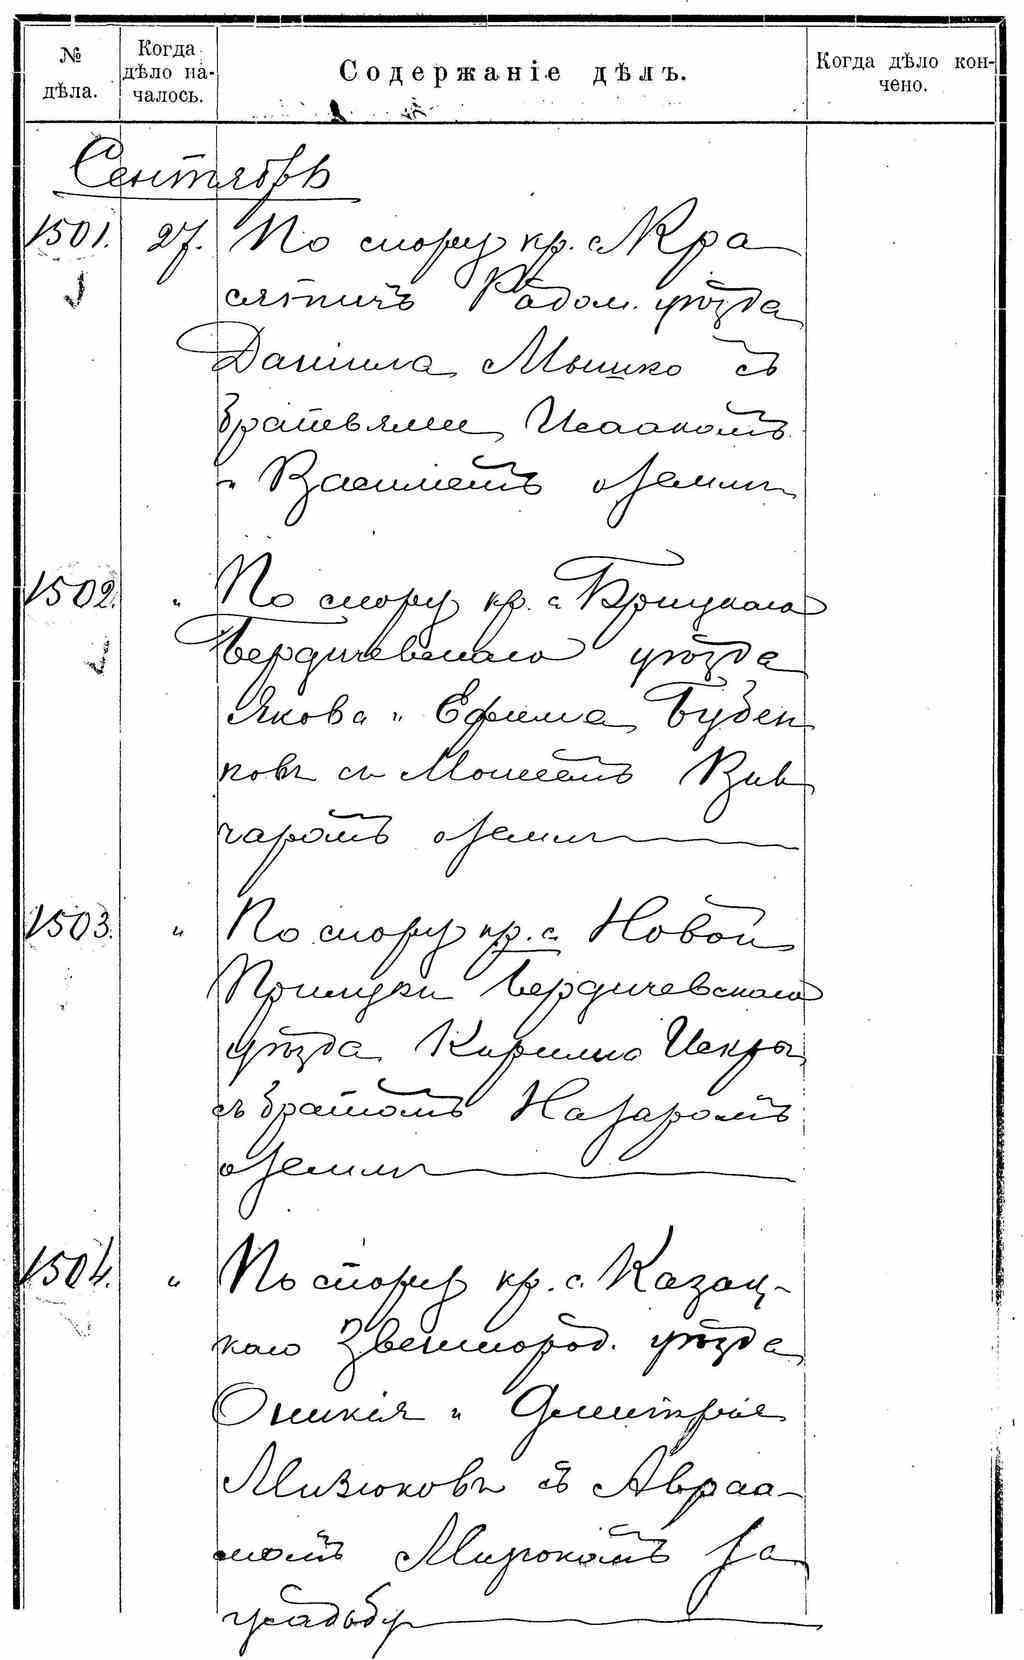 № дѣла.
Когда дѣло на-
чалось.
Содержаніе дѣлъ.
Когда дѣло кон-
чено.
Сентябрь
1501. 27. По спору кр. с. Кра
сятичъ Радом. уѣзда
Даніила Мышко съ
братьями Исаакомъ
и Василіемъ о землѣ
1502. " По спору кр. с. Брицкаго
Бердичевскаго уѣзда
Якова и Ефима Бубен
ковъ съ Моисеемъ Вив
чаромъ о землѣ
1503. " По спору кр. с. Новой
Прилуки Бердичевскаго
уѣзда Кирилла Искры
съ братомъ Назаромъ
о землѣ
1504. " По спору кр. с. Казац-
каго Звенигород. уѣзда
Оникія и Димитрія
Мизюковъ съ Авраа-
момъ Мизюкомъ за
усадьбу